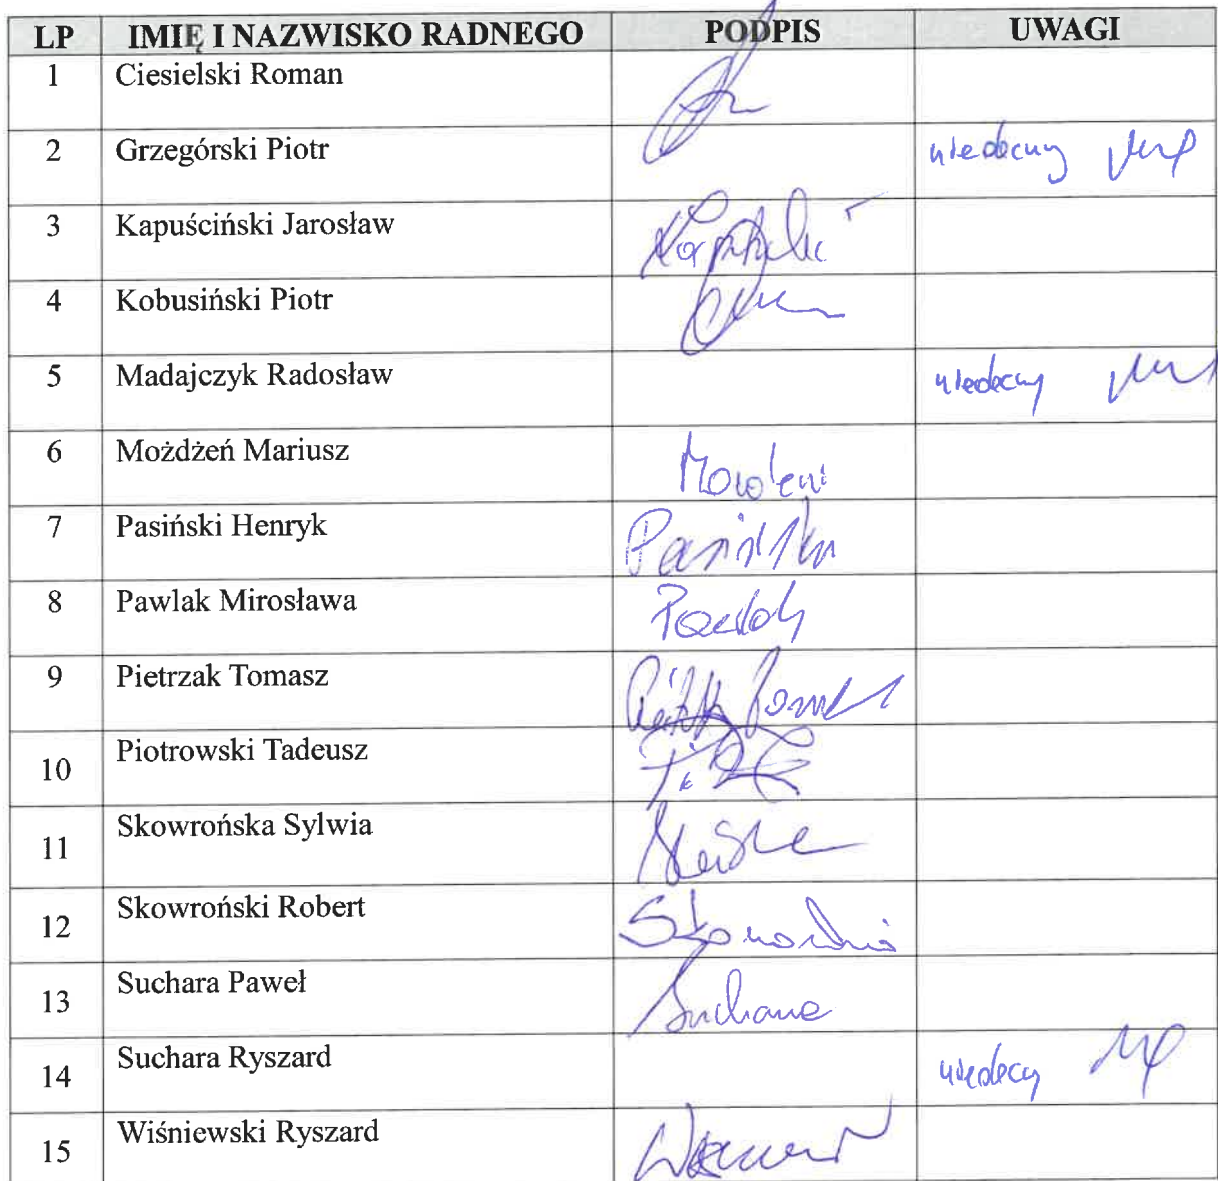 LP IMIĘ I NAZWISKO RADNEGO PODPIS UWAGI
1 Ciesielski Roman
2 Grzegórski Piotr nieobecny
3 Kapuściński Jarosław
4 Kobusiński Piotr
5 Madajczyk Radosław nieobecny
6 Możdżeń Mariusz
7 Pasiński Henryk
8 Pawlak Mirosława Pawlak
9 Pietrzak Tomasz
10 Piotrowski Tadeusz
11 Skowrońska Sylwia
12 Skowroński Robert
13 Suchara Paweł Suchara
14 Suchara Ryszard nieobecny
15 Wiśniewski Ryszard